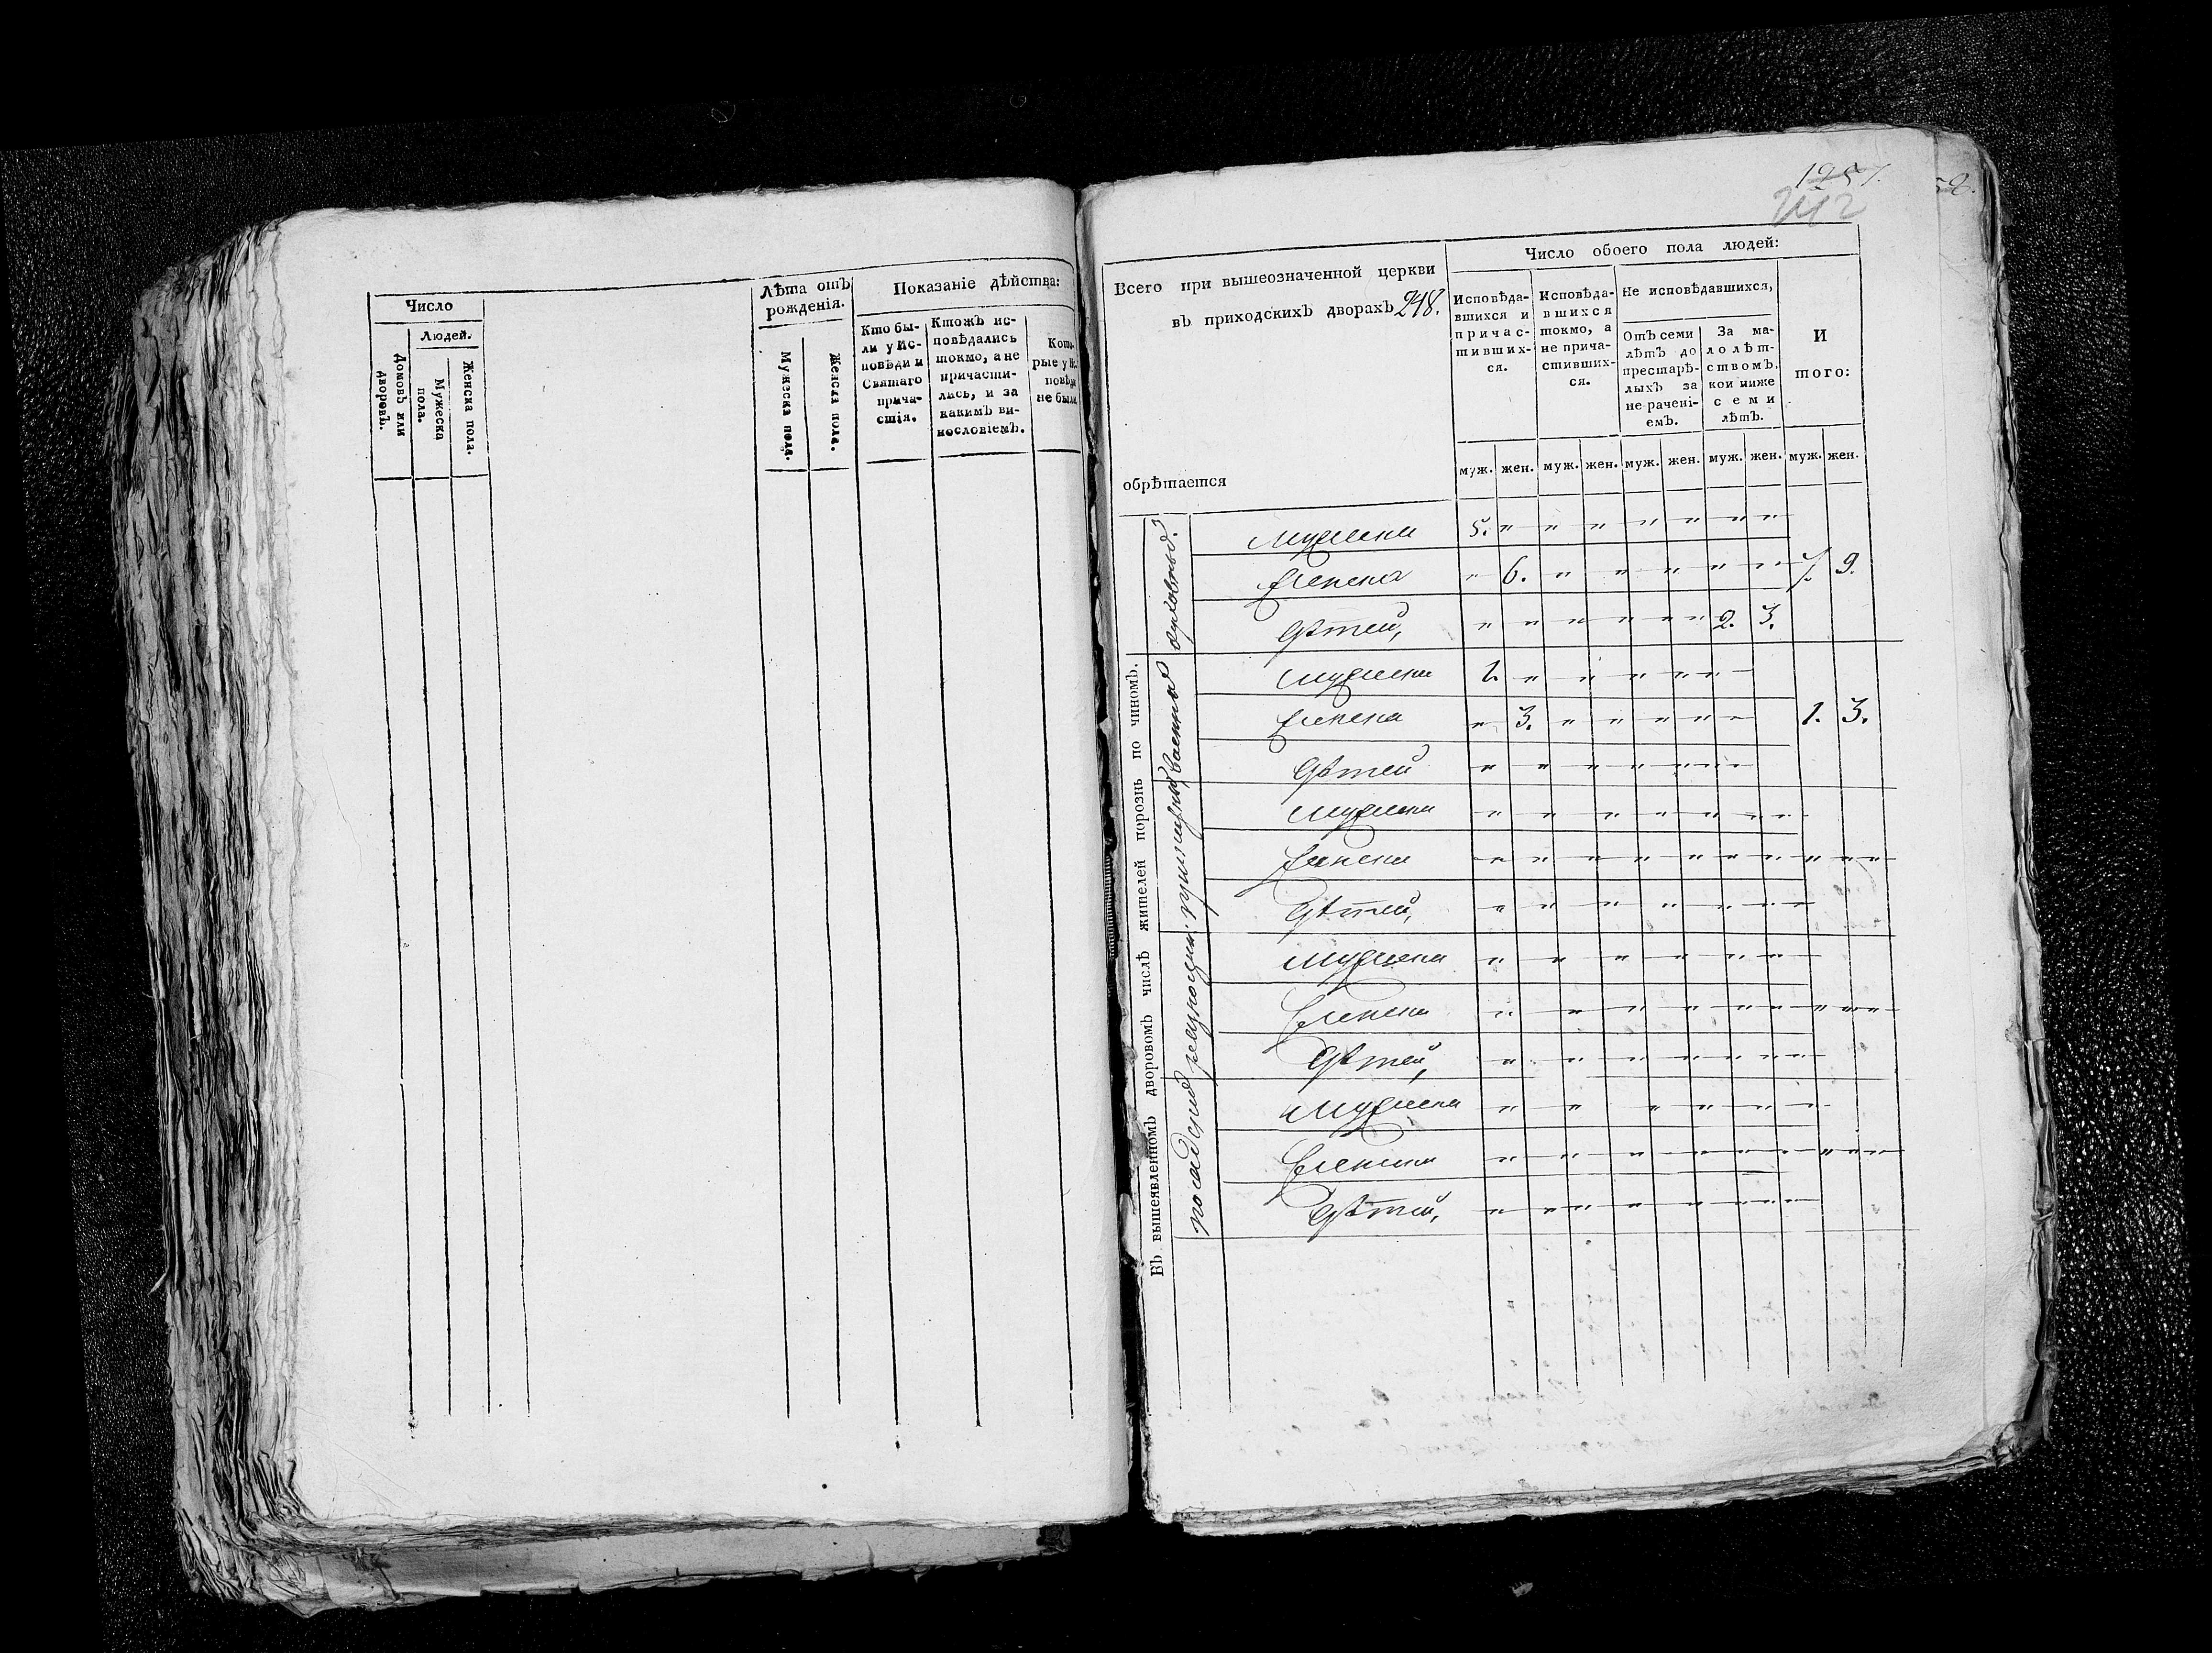 Число
Людей.
Домовъ или дворовъ.
Мужеска пола.
Женска пола.
Лѣта отъ
рожденія.
Мужеска пола.
Женска пола.
Показаніе дѣйства:
Кто бы-
ли у Ис-
повѣди и
Святаго
прича-
стія.
Ктожъ ис-
повѣдались
токмо, а не
причасти-
лись, и за
какимъ ви-
нословіемъ.
Кото-
рые у Ис
повѣди
не были.
1257.
212
Всего при вышеозначенной церкви
въ приходскихъ дворахъ 248.
обрѣтается
Число обоего пола людей:
Исповѣда-
вшихся и
причас-
тивших-
ся.
Исповѣда-
вшихся
токмо, а
не прича-
стивших-
ся.
Не исповѣдавшихся,
Отъ семи
лѣтъ до
престарѣ-
лыхъ за
нерачені-
емъ.
За ма-
лолѣт-
ствомъ,
кои ниже
семи
лѣтъ.
И
того:
муж. жен. муж. жен. муж. жен. муж. жен. муж. жен.
Въ вышеявленномъ дворовомъ числѣ жителей порознь по чиномъ.
духовныхъ.
мужеска 5. " " " " " " "
женска " 6. " " " " " " 7. 9.
дѣтей, " " " " " " 2. 3.
военныхъ
мужеска 1. " " " " " "
женска " 3. " " " " " 1. 3.
дѣтей " " " " " " "
мужеска " " " " " " " "
женска " " " " " " " " " "
дѣтей, " " " " " " " "
мужеска " " " " " " "
женска " " " " " " " " " "
дѣтей, " " " " " " " "
посадскихъ
мужеска " " " " " " "
женска " " " " " " " " " "
дѣтей, " " " " " " " "